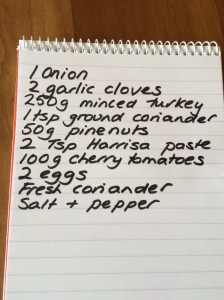 1 Onion
2 garlic cloves
250g minced turkey
1 tsp ground coriander
50g pinenuts
2 Tsp Harrisa paste
100g cherry tomatoes
2 eggs
Fresh coriander
Salt + pepper